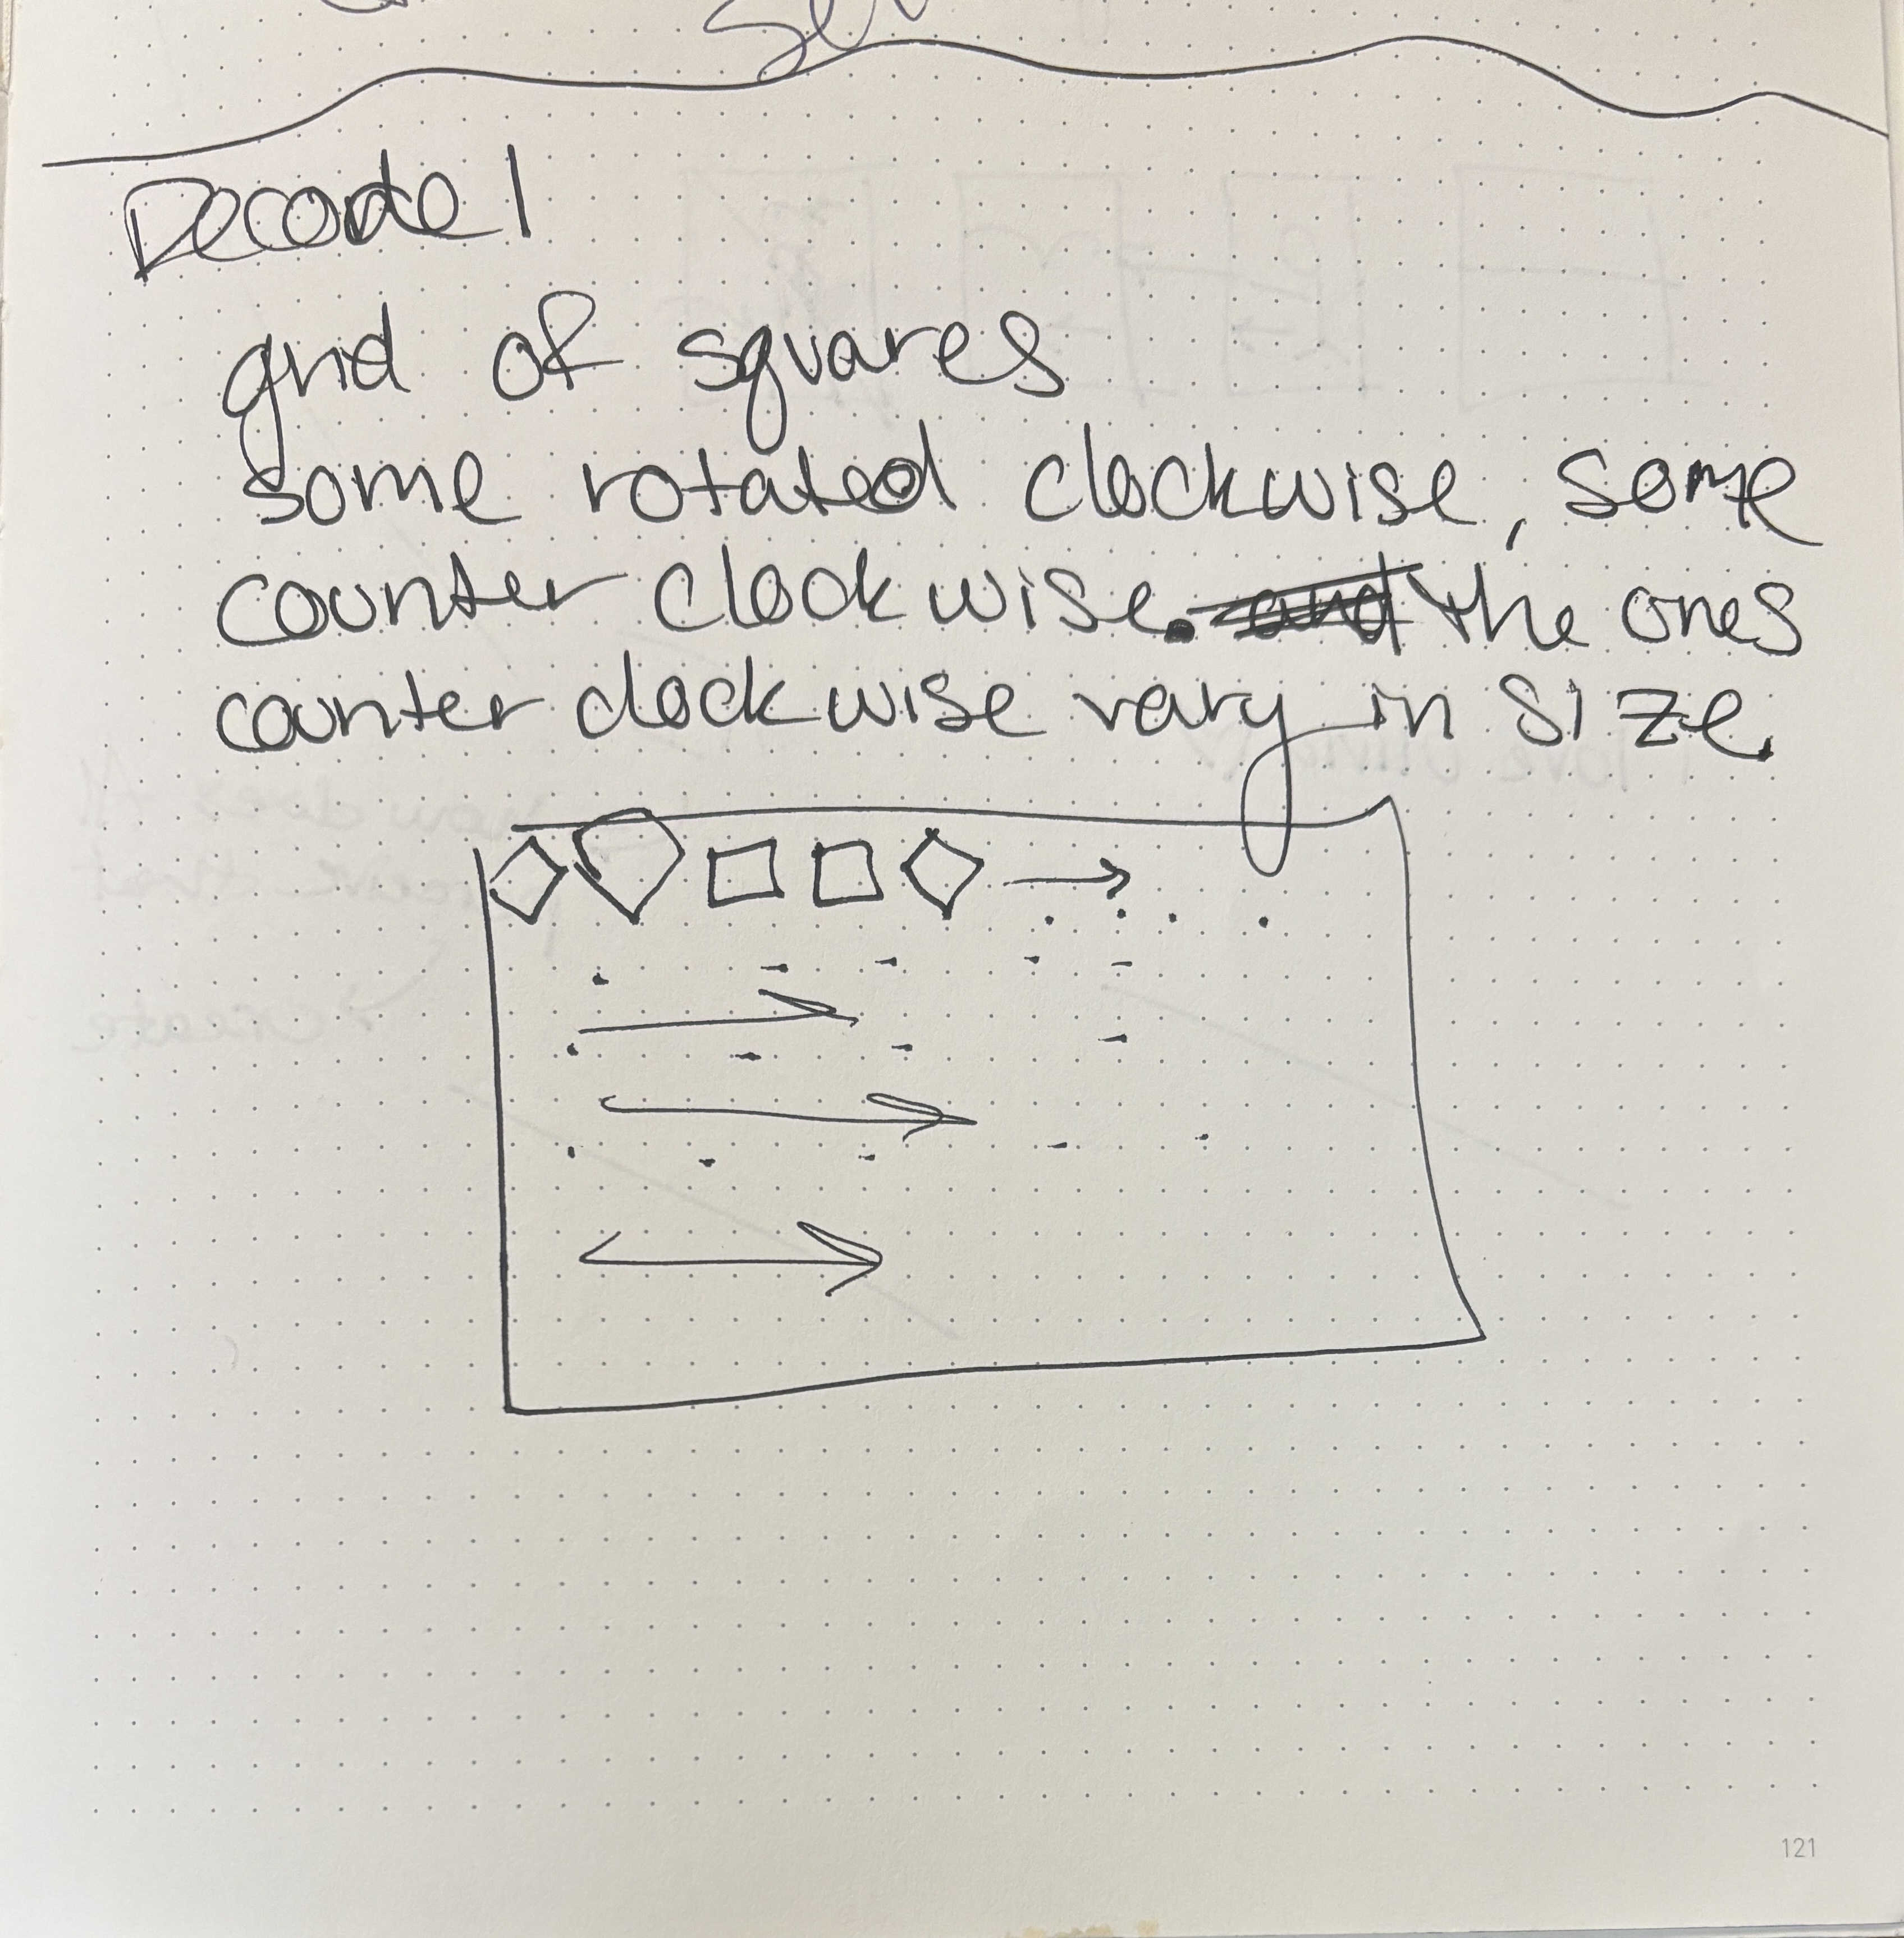 Decode 1
grid of squares
some rotated clockwise, some
counter clockwise. and the ones
counter clockwise vary in size.
121